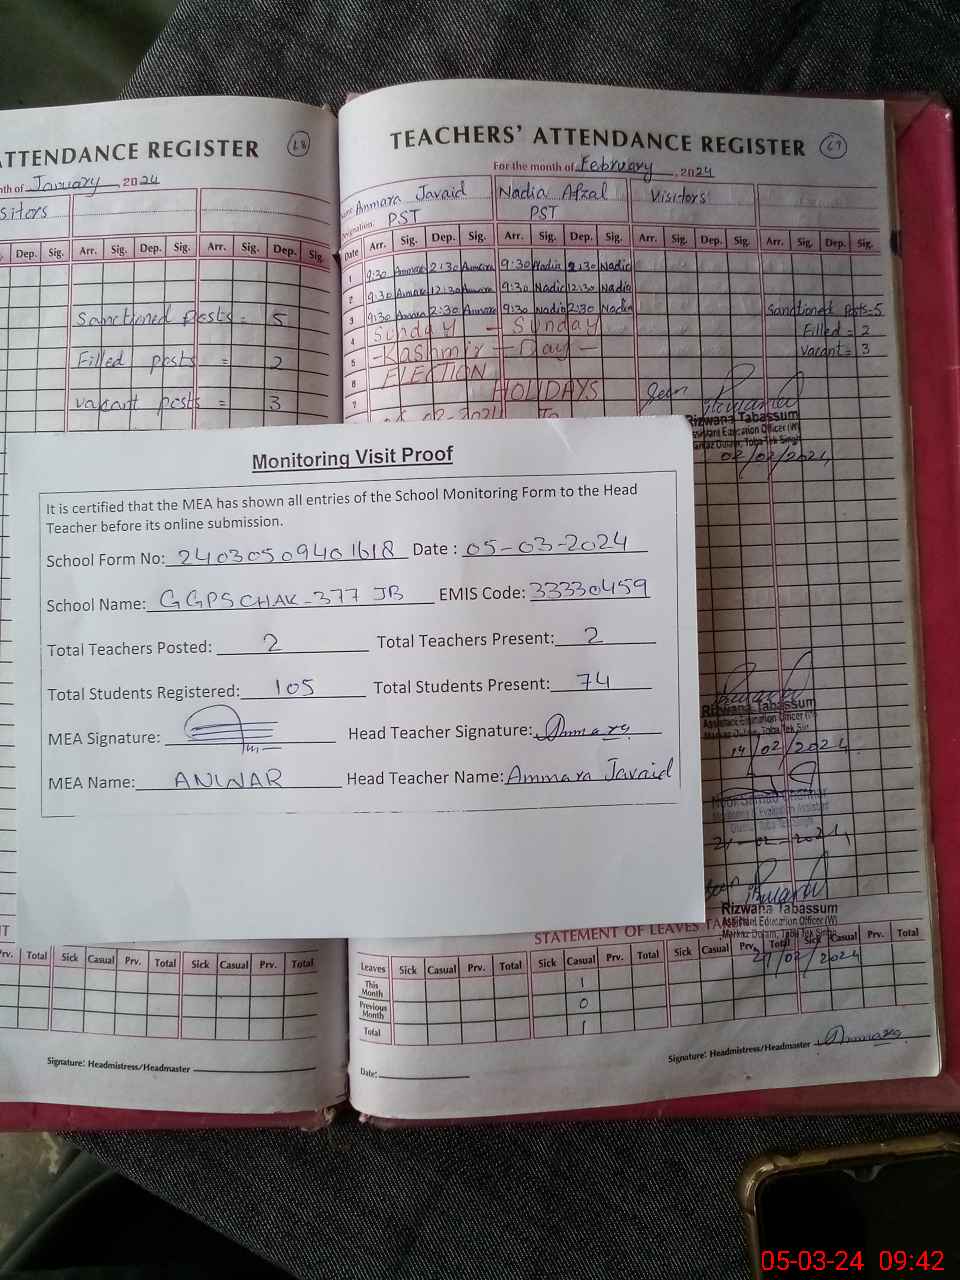 ATTENDANCE REGISTER 68
nth of January, 2024
sitors
Dep. Sig. Arr. Sig. Dep. Sig. Arr. Sig. Dep. Sig.
Sanctioned Posts = 5
Filled posts = 2
vacant posts = 3
TEACHERS' ATTENDANCE REGISTER
For the month of February, 2024
Name: Ammara Javaid Nadia Afzal Visitors
Designation: PST PST
Date Arr. Sig. Dep. Sig. Arr. Sig. Dep. Sig. Arr. Sig. Dep. Sig. Arr. Sig. Dep. Sig.
1 9:30 Ammara 2:30 Ammara 9:30 Nadia 2:30 Nadia
2 9:30 Ammara 12:30 Ammara 9:30 Nadia 12:30 Nadia
3 9:30 Ammara 2:30 Ammara 9:30 Nadia 2:30 Nadia
Sanctioned Posts = 5
4 Sunday - Sunday
Filled = 2
5 - Kashmir - Day -
Vacant = 3
6 ELECTION
7 HOLIDAYS
Seen
Rizwana Tabassum
Assistant Education Officer (W)
02/02/2024
Monitoring Visit Proof
It is certified that the MEA has shown all entries of the School Monitoring Form to the Head
Teacher before its online submission.
School Form No: 24030509401618 Date : 05-03-2024
School Name: GGPS CHAK-377 JB EMIS Code: 33330459
Total Teachers Posted: 2 Total Teachers Present: 2
Total Students Registered: 105 Total Students Present: 74
MEA Signature: Head Teacher Signature: Ammara
MEA Name: ANWAR Head Teacher Name: Ammara Javaid
Rizwana Tabassum
Assistant Education Officer (W)
14/02/2024
21-02-2024
Seen
Rizwana Tabassum
Assistant Education Officer (W)
27/02/2024
STATEMENT OF LEAVES TAKEN
Prv. Total Sick Casual Prv. Total Sick Casual Prv. Total
Leaves Sick Casual Prv. Total Sick Casual Prv. Total Sick Casual Prv. Total Sick Casual Prv. Total
This Month 1
Previous Month 0
Total 1
Signature: Headmistress/Headmaster
Signature: Headmistress/Headmaster Ammara
Date:
05-03-24 09:42